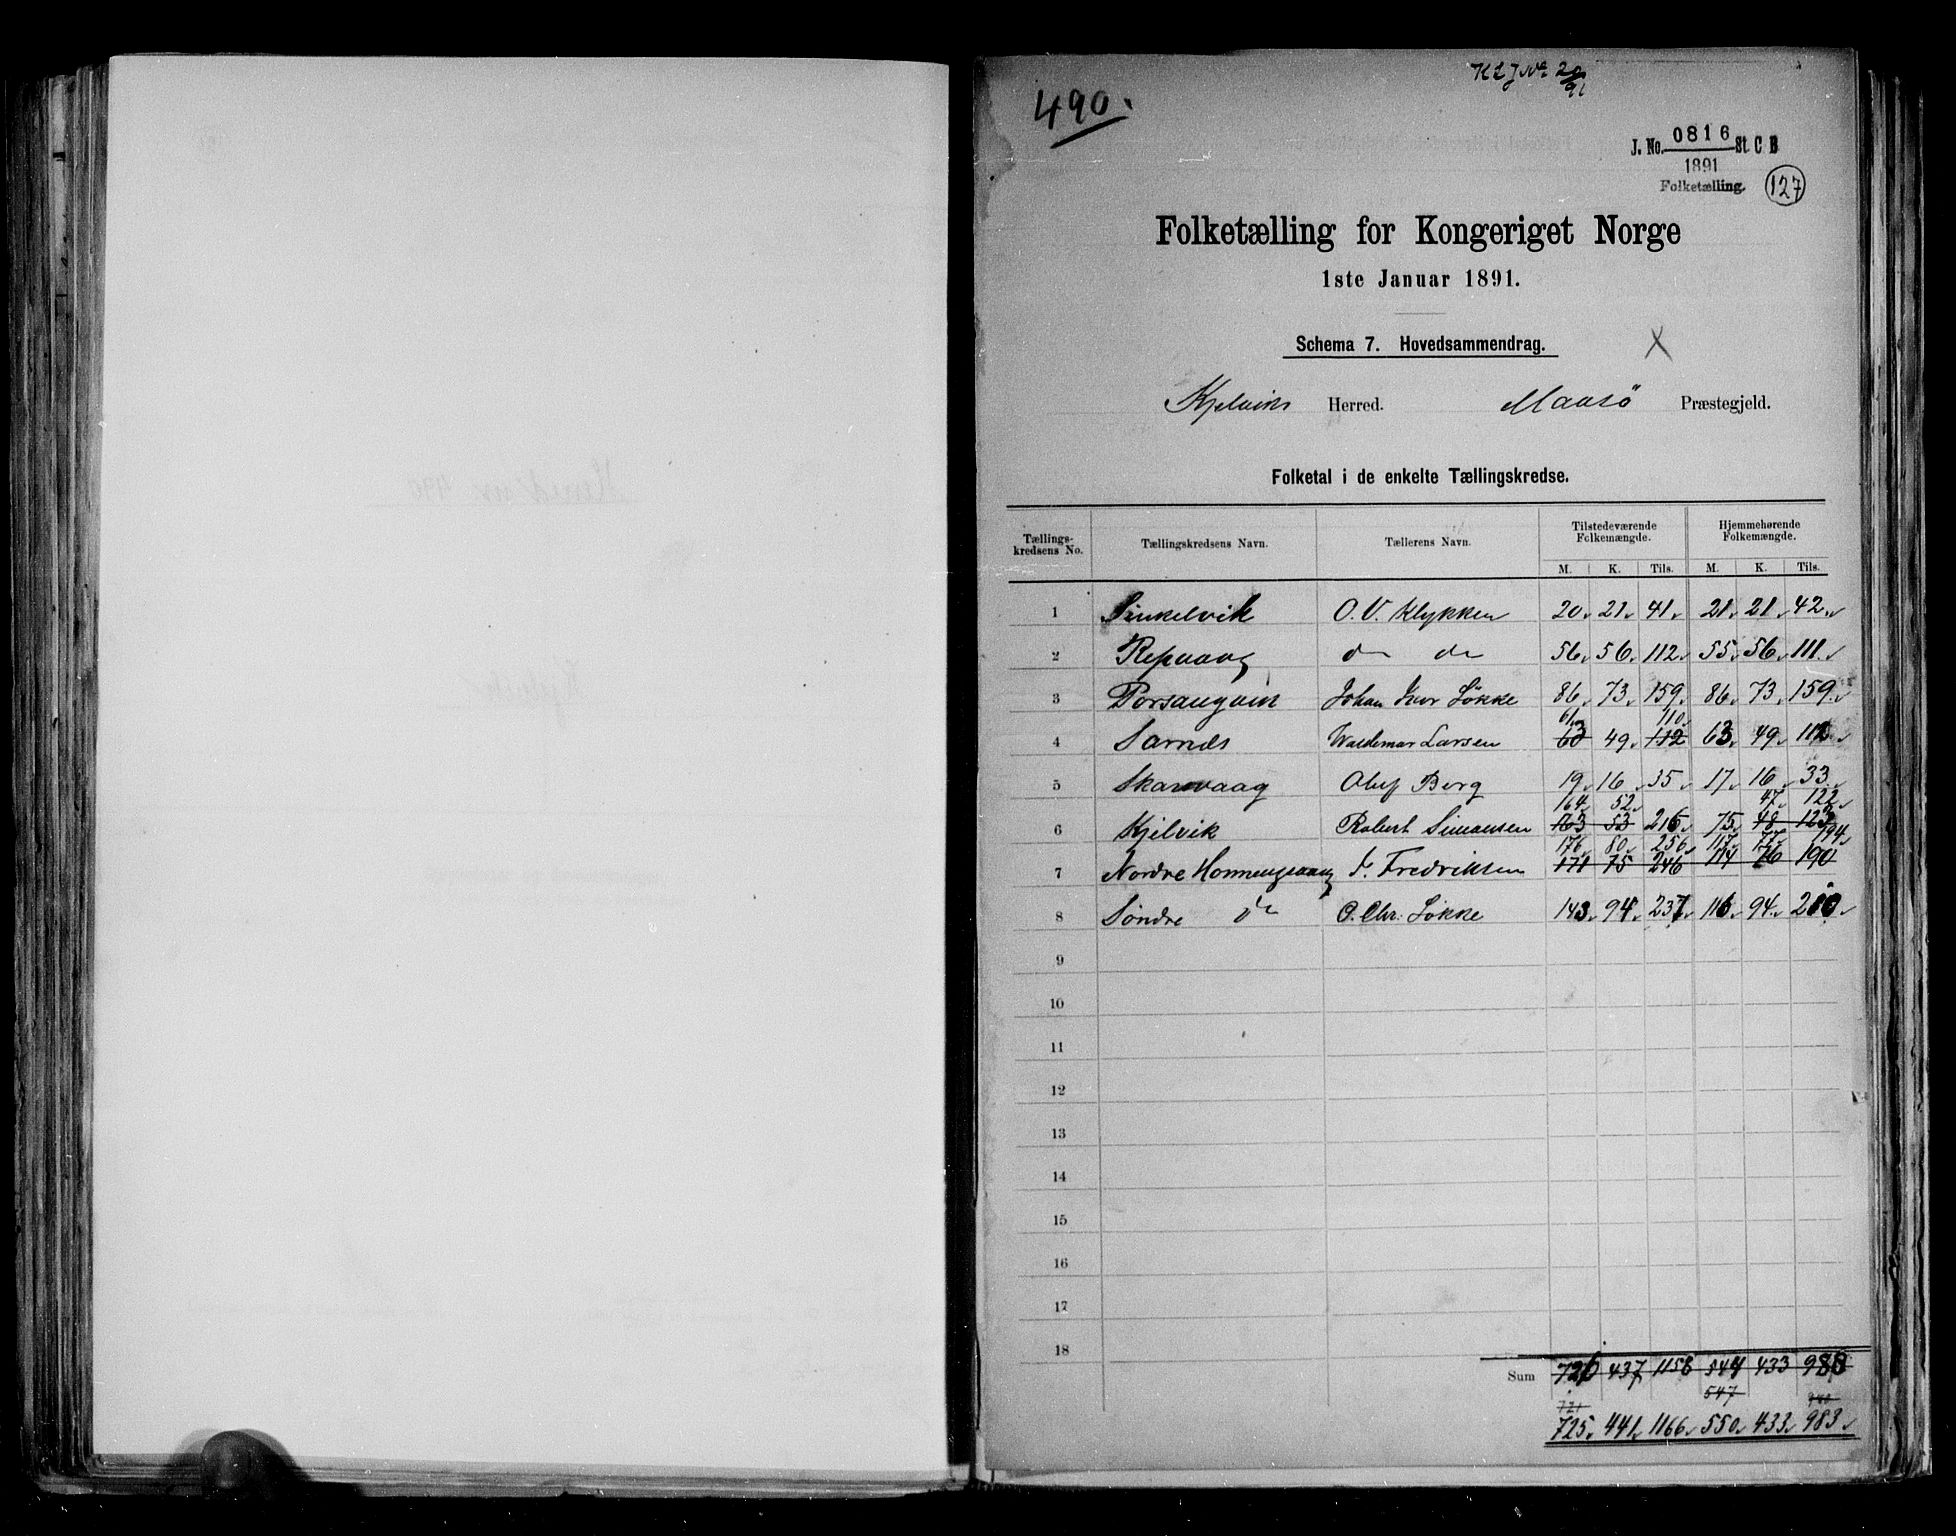 490.
J. No. 0816 St C B
1891
Folketælling. 127
Folketælling for Kongeriget Norge
1ste Januar 1891.
Schema 7. Hovedsammendrag. X
Kjelviks Herred. Maasö Præstegjeld.
Folketal i de enkelte Tællingskredse.
Tællings-kredsens No. Tællingskredsens Navn. Tællerens Navn. Tilstedeværende Folkemængde. Hjemmehørende Folkemængde.
M. K. Tils. M. K. Tils.
1 Finkelvik O. V. Klykken 20 21 41 21 21 42
2 Repvaag do do 56 56 112 55 56 111
3 Porsangvin Johan Iver Løkke 86 73 159 86 73 159
61 110
4 Sarnæs Waldemar Larsen 63 49 112 63 49 112
5 Skarvaag Oluf Berg 19 16 35 17 16 33
164 52 47 122
6 Kjelvik Robert Simonsen 163 53 216 75 48 123
176 80 256 117 77 194
7 Nordre Honningsvaag J. Fredriksen 171 75 246 114 76 190
8 Söndre do O. Chr. Løkke 143 94 237 116 94 210
9
10
11
12
13
14
15
16
17
18
Sum 726 437 1158 433 988
721 547 980
725 441 1166 550 433 983